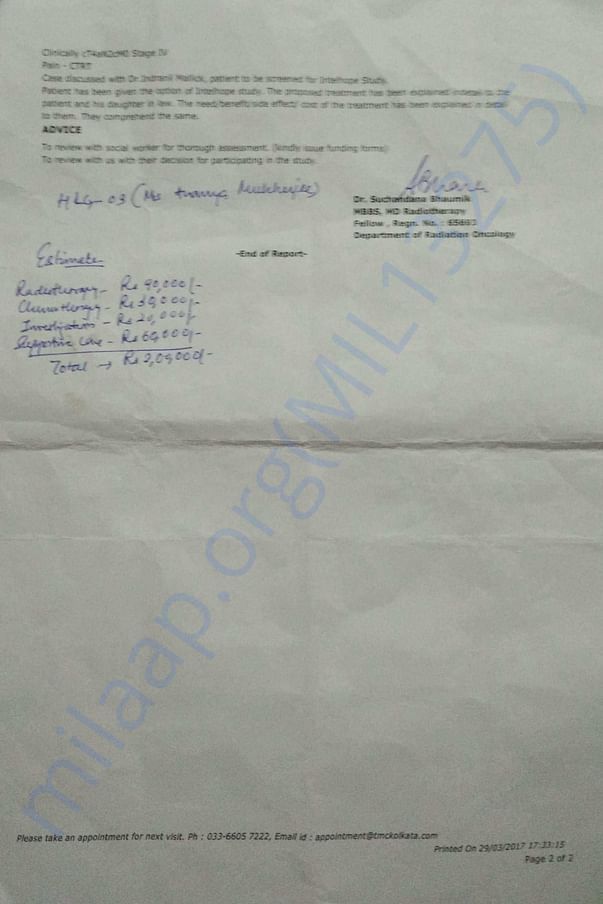 Clinically cT4aN2cM0 Stage IV
Plan - CTRT
Case discussed with Dr.Indranil Mallick, patient to be screened for Intelhope Study.
Patient has been given the option of Intelhope study. The proposed treatment has been explained indetail to the
patient and his daughter in law. The need/benefit/side effect/ cost of the treatment has been explained in detail
to them. They comprehend the same.
ADVICE
To review with social worker for thorough assessment. (kindly issue funding forms)
To review with us with their decision for participating in the study.
HLG-03 (Ms Mukherjee)
Dr. Suchandana Bhaumik
MBBS, MD Radiotherapy
Fellow , Regn. No. :
Department of Radiation Oncology
-End of Report-
Estimate
Radiotherapy - Rs 90,000/-
Chemotherapy - Rs 30,000/-
Investigations - Rs 20,000/-
Supportive Care - Rs 60,000/-
Total → Rs 2,00,000/-
milaap.org(MIL115275)
Please take an appointment for next visit. Ph : 033-6605 7222, Email id : appointment@tmckolkata.com
Printed On 29/03/2017 17:33:15
Page 2 of 2